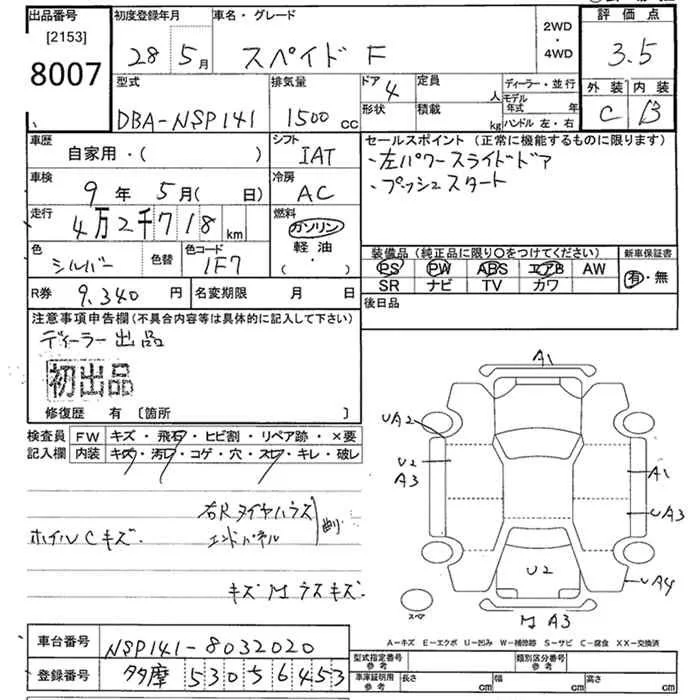 出品番号 初度登録年月 車名・グレード 2WD・4WD 評価点
[2153]
8007 28年5月 スペイド F 3.5
型式 排気量 ドア 4 定員 人 ディーラー・並行 外装 内装
DBA-NSP141 1500cc 形状 積載 kg モデル年式 年 ハンドル 左・右 C B
車歴 自家用・( ) シフト IAT セールスポイント (正常に機能するものに限ります)
車検 9年5月( 日) 冷房 AC ・左パワースライドドア
・プッシュスタート
走行 4万2千718km 燃料 ガソリン 軽油 ( ・ )
色 シルバー 色替 色コード 1F7 装備品 (純正品に限り○をつけてください) 新車保証書
PS PW ABS エアB AW 有・無
SR ナビ TV カワ
R券 9,340円 名変期限 月 日 後日品
注意事項申告欄(不具合内容等は具体的に記入して下さい)
ディーラー出品
初出品
修復歴 有 〔箇所 〕
検査員 FW キズ・飛石・ヒビ割・リペア跡・×要
記入欄 内装 キズ・汚レ・コゲ・穴・スレ・キレ・破レ
右Rタイヤハウス
ホイルCキズ. エンドパネル
キズ M ラスキズ.
A1
UA2
U2 A3
A1
UA3
U2
UA4
スペア
M A3
A-キズ E-エクボ U-凹ミ W-補修跡 S-サビ C-腐食 XX-交換済
車台番号 NSP141-8032020 型式指定番号 参考 類別区分番号 参考
登録番号 多摩 530 5 6453 車庫証明用 参考 長さ cm 幅 cm 高さ cm